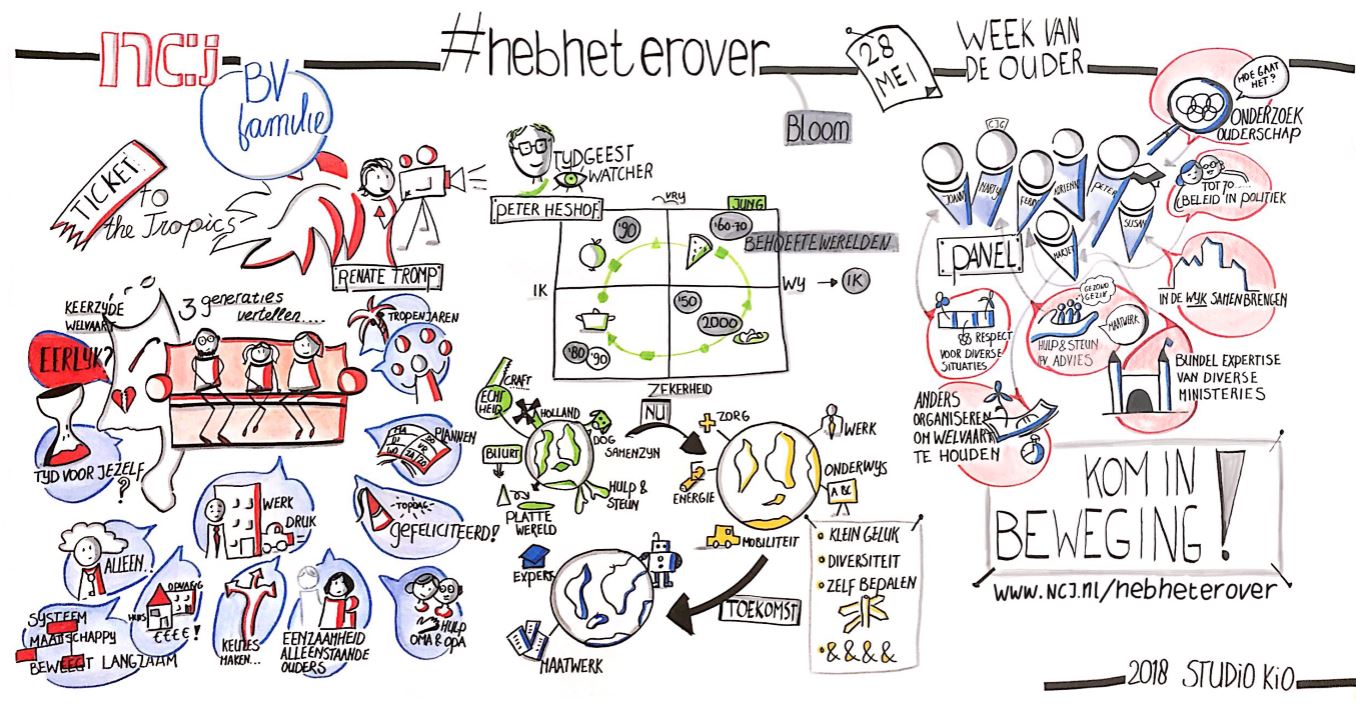 ncj
#hebheterover
28
MEI
WEEK VAN
DE OUDER
BV
familie
Bloom
TICKET
to
the Tropics
RENATE TROMP
KEERZYDE
WELVAART
EERLYK?
3 generaties
vertellen....
TROPENJAREN
TYD VOOR JEZELF
?
PLANNEN
MA
DI
WO
VR
ZA
ZO
WERK
DRUK
-TOPDAG-
GEFELICITEERD!
ALLEEN..!
HUIS
OPVANG
€€€€!
KEUZES
MAKEN...
EENZAAMHEID
ALLEENSTAANDE
OUDERS
HULP
OMA & OPA
SYSTEEM
MAATSCHAPPY
BEWEEGT LANGZAAM
TYDGEEST
WATCHER
PETER HESHOF
VRY
JUNG
'90
'60-70
BEHOEFTEWERELDEN
IK
WY → IK
'50
2000
'80
'90
ZEKERHEID
CRAFT
ECHT
HEID
HOLLAND
DOG
SAMENZYN
BUURT
HULP &
STEUN
PLATTE
WERELD
NU
ZORG
WERK
ONDERWYS
ABC
ENERGIE
MOBILITEIT
KLEIN GELUK
DIVERSITEIT
ZELF BEDALEN
&&&&
TOEKOMST
EXPERT
MAATWERK
HOE GAAT
HET?
ONDERZOEK
OUDERSCHAP
CJG
MARTY
ADRIENNE
PETER
SUSAN
MARJET
PANEL
TOT 70....
BELEID IN POLITIEK
IN DE WYK SAMENBRENGEN
RESPECT
VOOR DIVERSE
SITUATIES
GEZOND
GEZIN
MAATWERK
HULP & STEUN
IPV. ADVIES
BUNDEL EXPERTISE
VAN DIVERSE
MINISTERIES
ANDERS
ORGANISEREN
OM WELVAART
TE HOUDEN
KOM IN
BEWEGING!
www.NCJ.nl/hebheterover
2018 STUDIO KiO